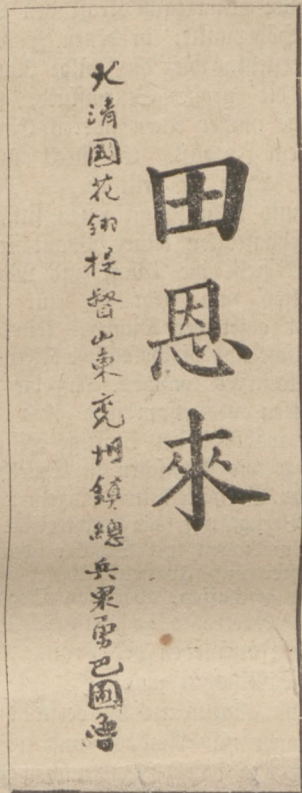 田恩來
大清國花翎提督山東兗鎮總兵果勇巴圖魯